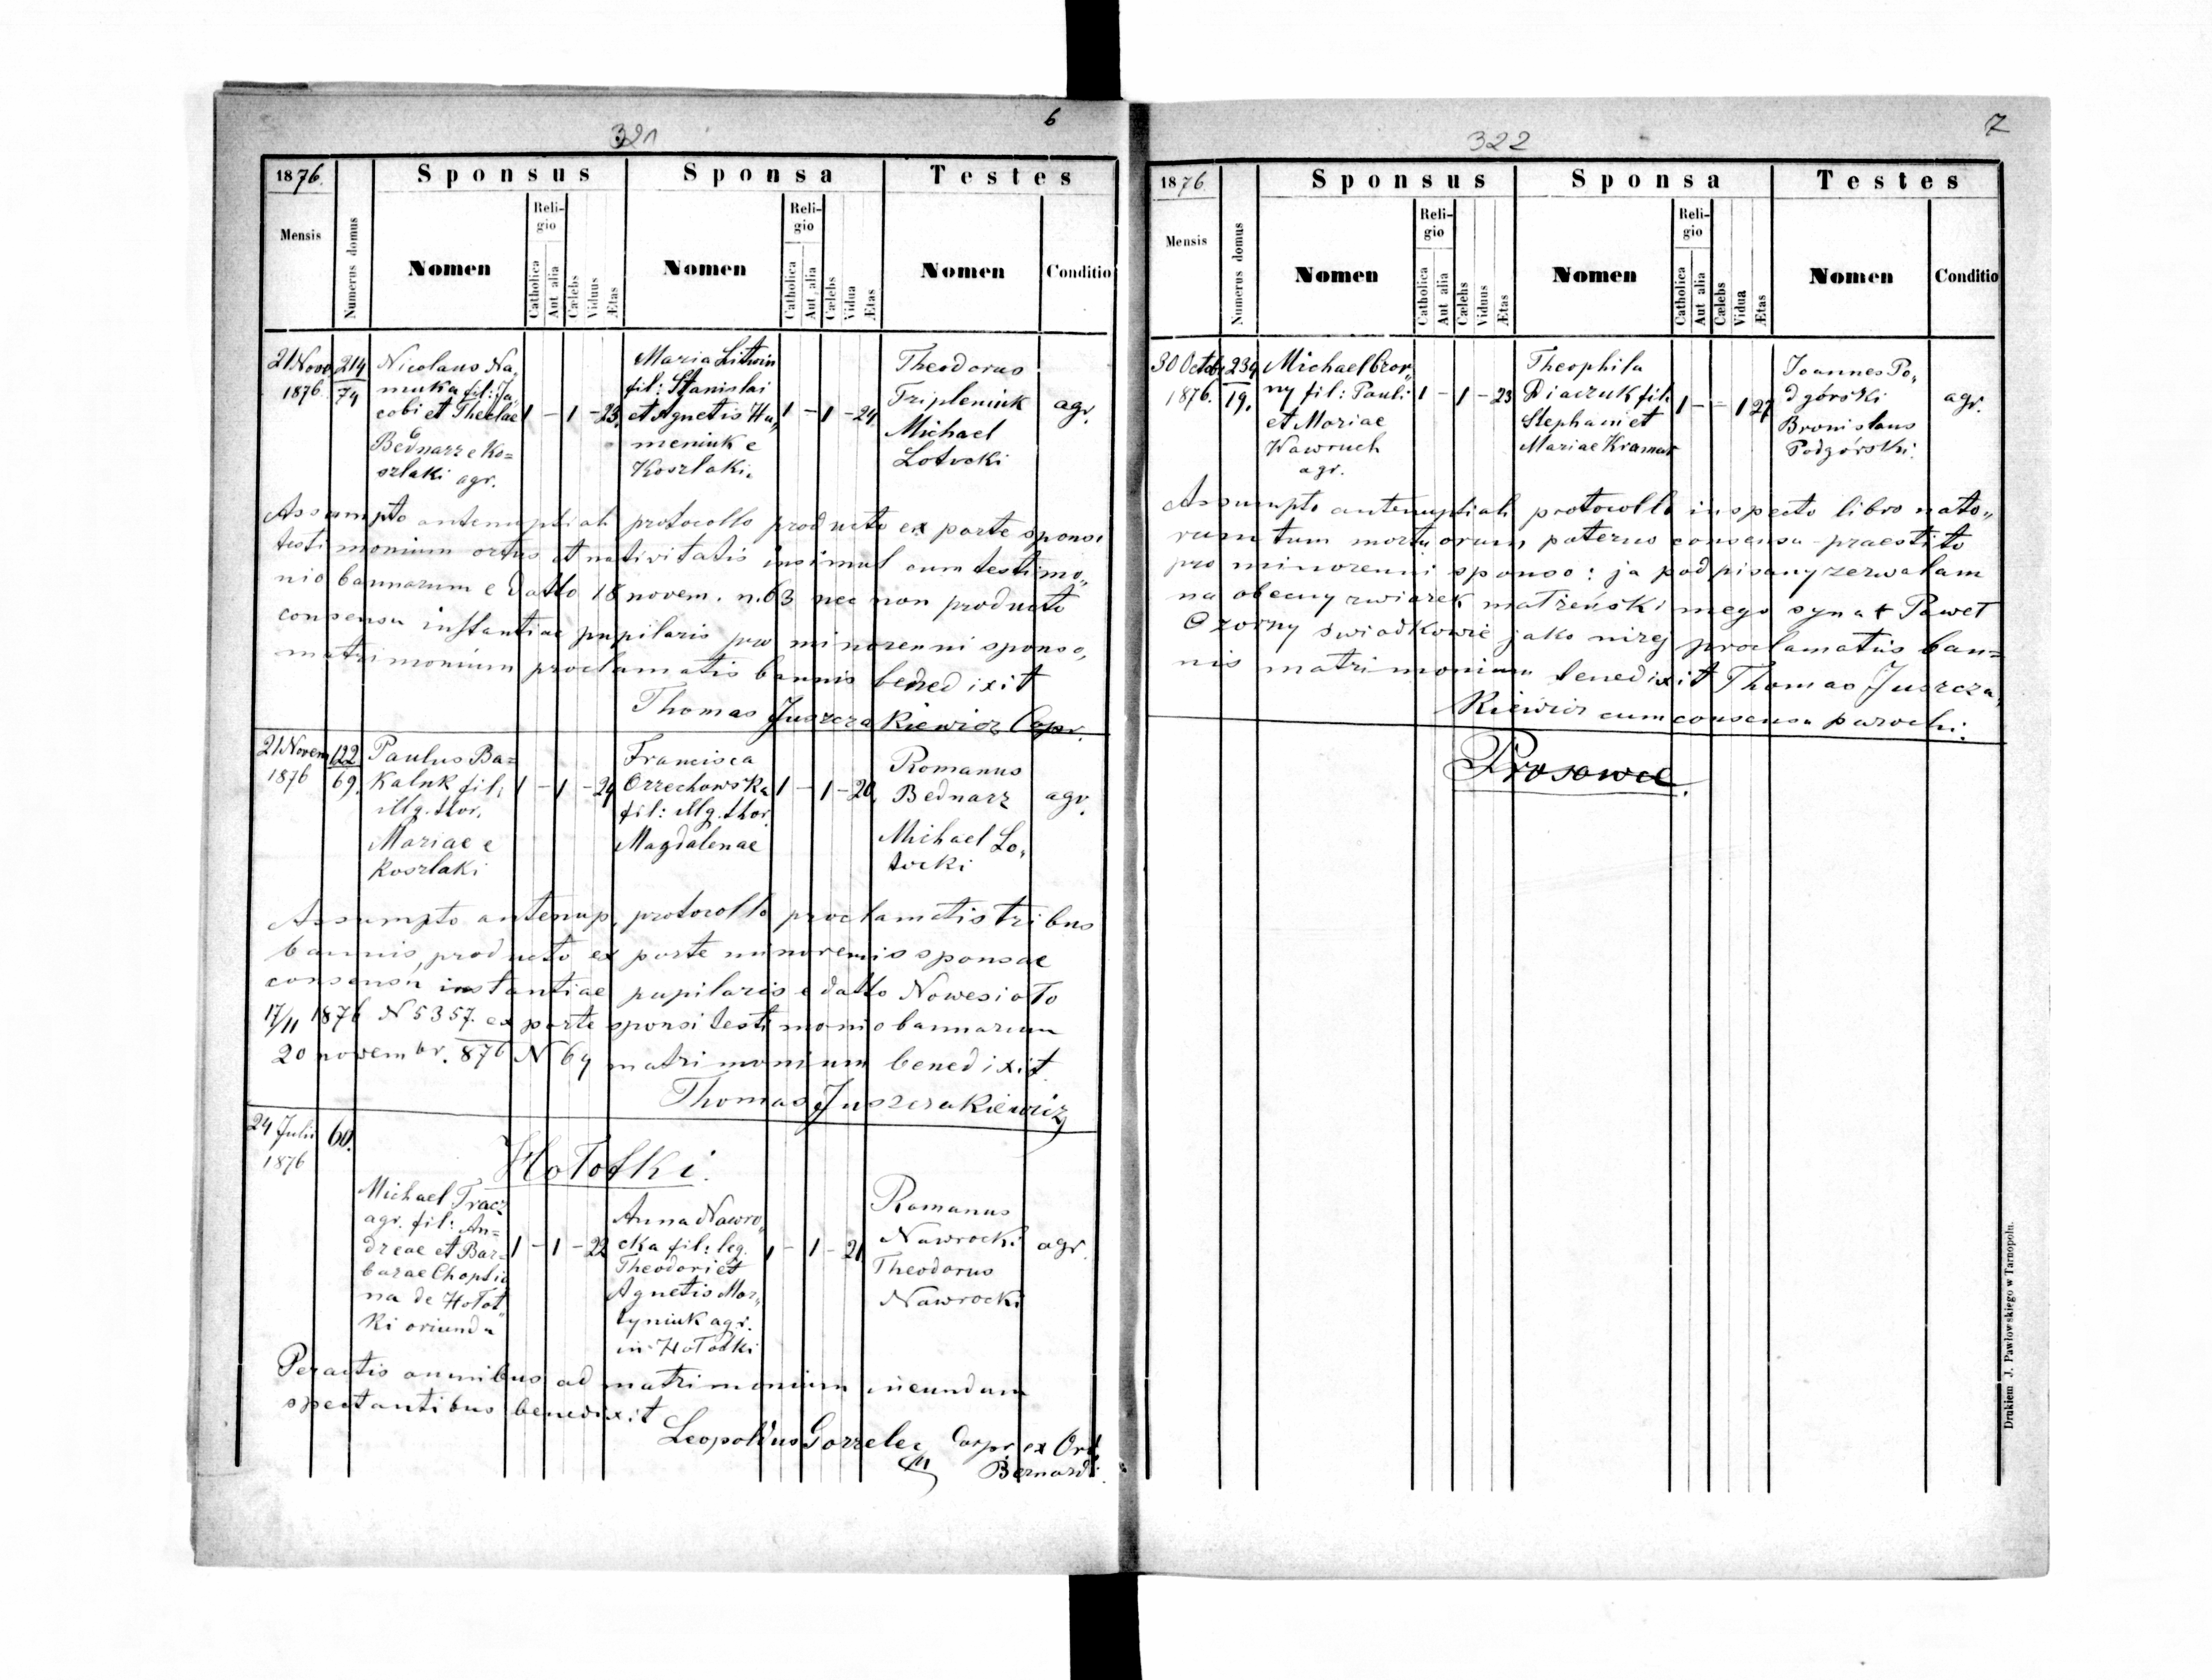 321
6
1876.
Sponsus
Sponsa
Testes
Mensis
Numerus domus
Nomen
Religio
Catholica
Aut alia
Cælebs
Viduus
Ætas
Nomen
Religio
Catholica
Aut alia
Cælebs
Vidua
Ætas
Nomen
Conditio
21 Novo
1876.
214
74
Nicolaus Na„
muka fil: Ja„
cobi et Theclae
Bednarz e Ko=
szlaki agr.
1 – 1 – 23.
Maria Litwin
fil: Stanislai
et Agnetis Hu„
meniuk e
Koszlaki.
1 – 1 – 24.
Theodorus
Tripleniuk
Michael
Lotocki
agr.
Assumpto antenuptiali protocollo producto ex parte sponsi
testimonium ortus et nativitatis insimul cum testimo„
nio bannorum e datto 18 novem. n. 63 nec non producto
consensu instantiae pupilaris pro minorenni sponso,
matrimonium proclamatis bannis benedixit
Thomas Juszczakiewicz Capr.
21 Novem
1876
122
69.
Paulus Ba=
kaluk fil:
illg. thor.
Mariae e
Koszlaki
1 – 1 – 24
Francisca
Orzechowska
fil: illg. thor.
Magdalenae
1 – 1 – 20.
Romanus
Bednarz
Michael Lo„
tocki
agr.
Assumpto antenup. protocollo proclamatis tribus
bannis, producto ex parte minorenis sponsae
consensu instantiae pupilaris e datto Nowesioło
17/11 1876 N 5357. ex parte sponsi testimonio bannorum
20 novembr. 876 N 64 matrimonium benedixit.
Thomas Juszczakiewicz
24 Julii
1876
60.
Hołotki.
Michael Tracz
agr. fil: An=
dreae et Bar=
barae Choptia
na de Hołot„
ki oriundu
1 – 1 – 22
Anna Nawro„
cka fil: leg.
Theodori et
Agnetis Mar„
tyniuk agr.
in Hołotki
1 – 1 – 21
Romanus
Nawrocki
Theodorus
Nawrocki
agr.
Peractis omnibus ad matrimonium ineundum
spectantibus benedixit
Leopoldus Gorzelec Corpr ex Ord.
Bernard:
322
7
1876
Sponsus
Sponsa
Testes
Mensis
Numerus domus
Nomen
Religio
Catholica
Aut alia
Cælebs
Viduus
Ætas
Nomen
Religio
Catholica
Aut alia
Cælebs
Vidua
Ætas
Nomen
Conditio
30 Octobr
1876.
234
19.
Michael Czor„
ny fil: Pauli
et Mariae
Wawruch
agr.
1 – 1 – 23
Theophila
Diaczuk fil:
Stephani et
Mariae Kramar
1 – – 1 27
Joannes Po„
dgórski
Bronislaus
Podgórski.
agr.
Assumpto antenuptiali protocollo inspecto libro nato„
rum tum mortuorum, paterno consensu praestito
pro minorenni sponso: ja podpisany zezwalam
na obecny związek małżeński mego syna + Paweł
Czorny świadkowie jako niżej proclamatis ban=
nis matrimonium benedixit Thomas Juszcza„
kiewicz cum consensu parochi.
Prosowce.
Drukiem J. Pawłowskiego w Tarnopolu.